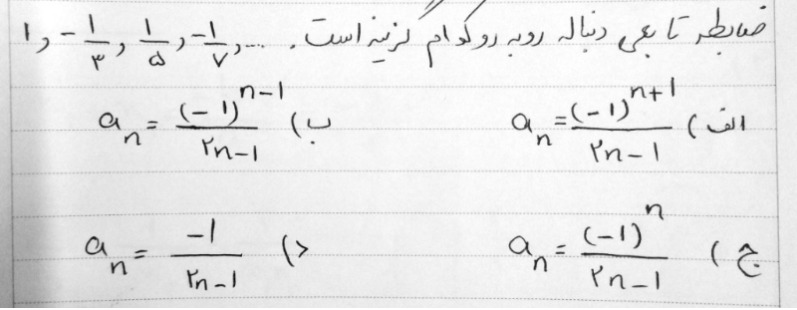 ضابطه تابعی دنباله روبه رو کدام گزینه است. ۱, -۱/۳, ۱/۵, -۱/۷, ...
الف) aₙ = (-۱)ⁿ⁺¹ / ۲n-۱ ب) aₙ = (-۱)ⁿ⁻¹ / ۲n-۱
ج) aₙ = (-۱)ⁿ / ۲n-۱ د) aₙ = -۱ / ۲n-۱